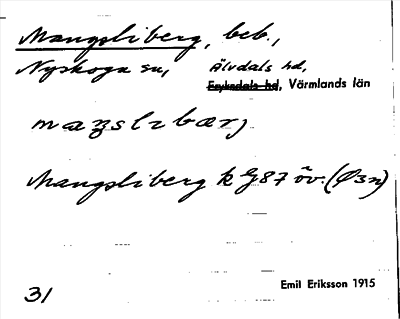 Mangsliberg, beb.,
Nyskoga sn, Älvdals hd,
Fryksdals hd, Värmlands län
Mangsliberg k G87 öv. (Ø3n)
Emil Eriksson 1915
31